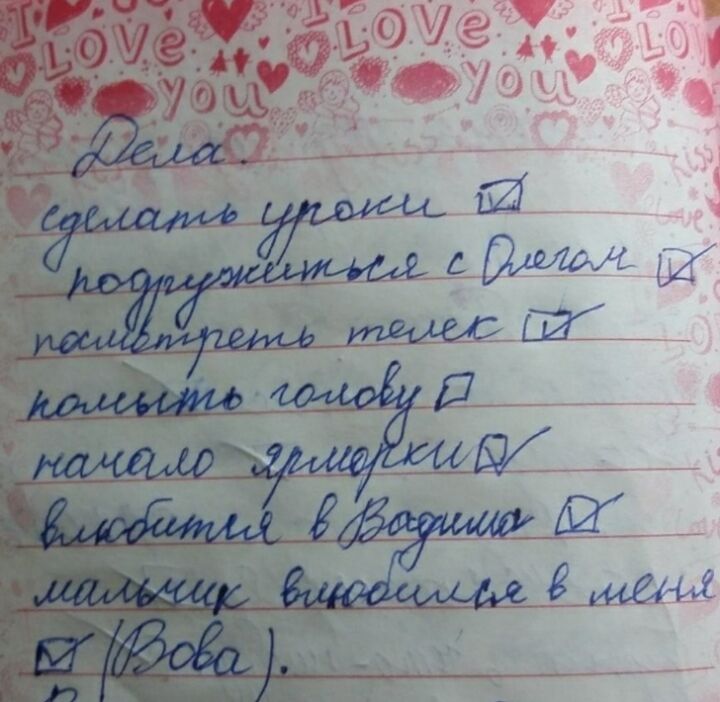 I LOVE YOU I LOVE YOU LOVE
Дела.
сделать уроки ☑
подружиться с Олегом ☑
посмотреть телек ☑
помыть голову ☐
начало ярморки ☑
влюбится в Вадима ☑
мальчик влюбился в меня
☑ (Вова).